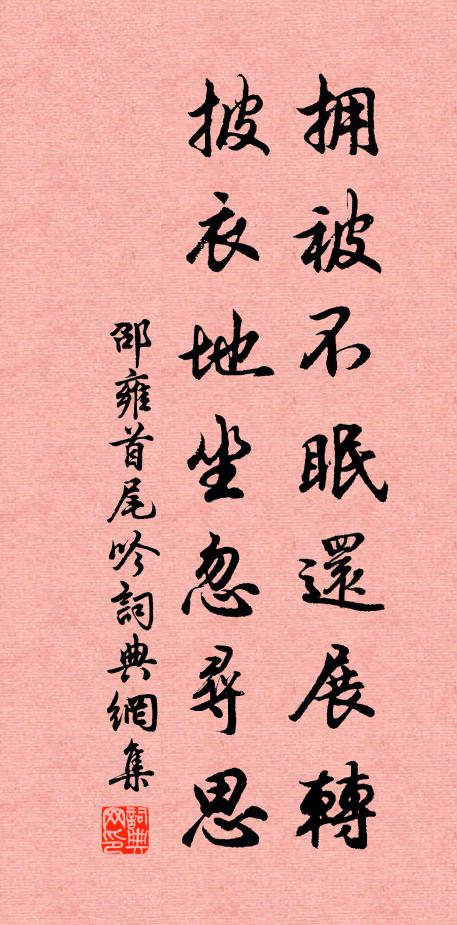 拥被不眠還展轉
披衣地坐忽尋思
邵雍首尾吟詞典網集
詞典网印